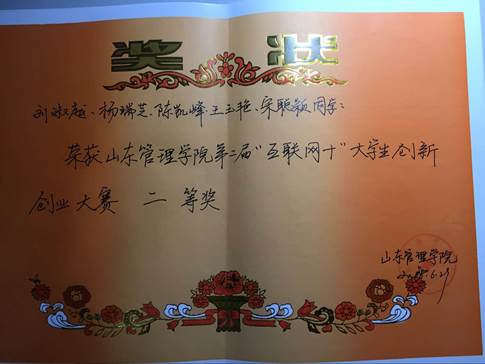 奖状
刘淑越、杨瑞芝、陈凯峰、王玉艳、宋聪颖同学:
荣获山东管理学院第二届"互联网十"大学生创新
创业大赛 二 等奖
山东管理学院